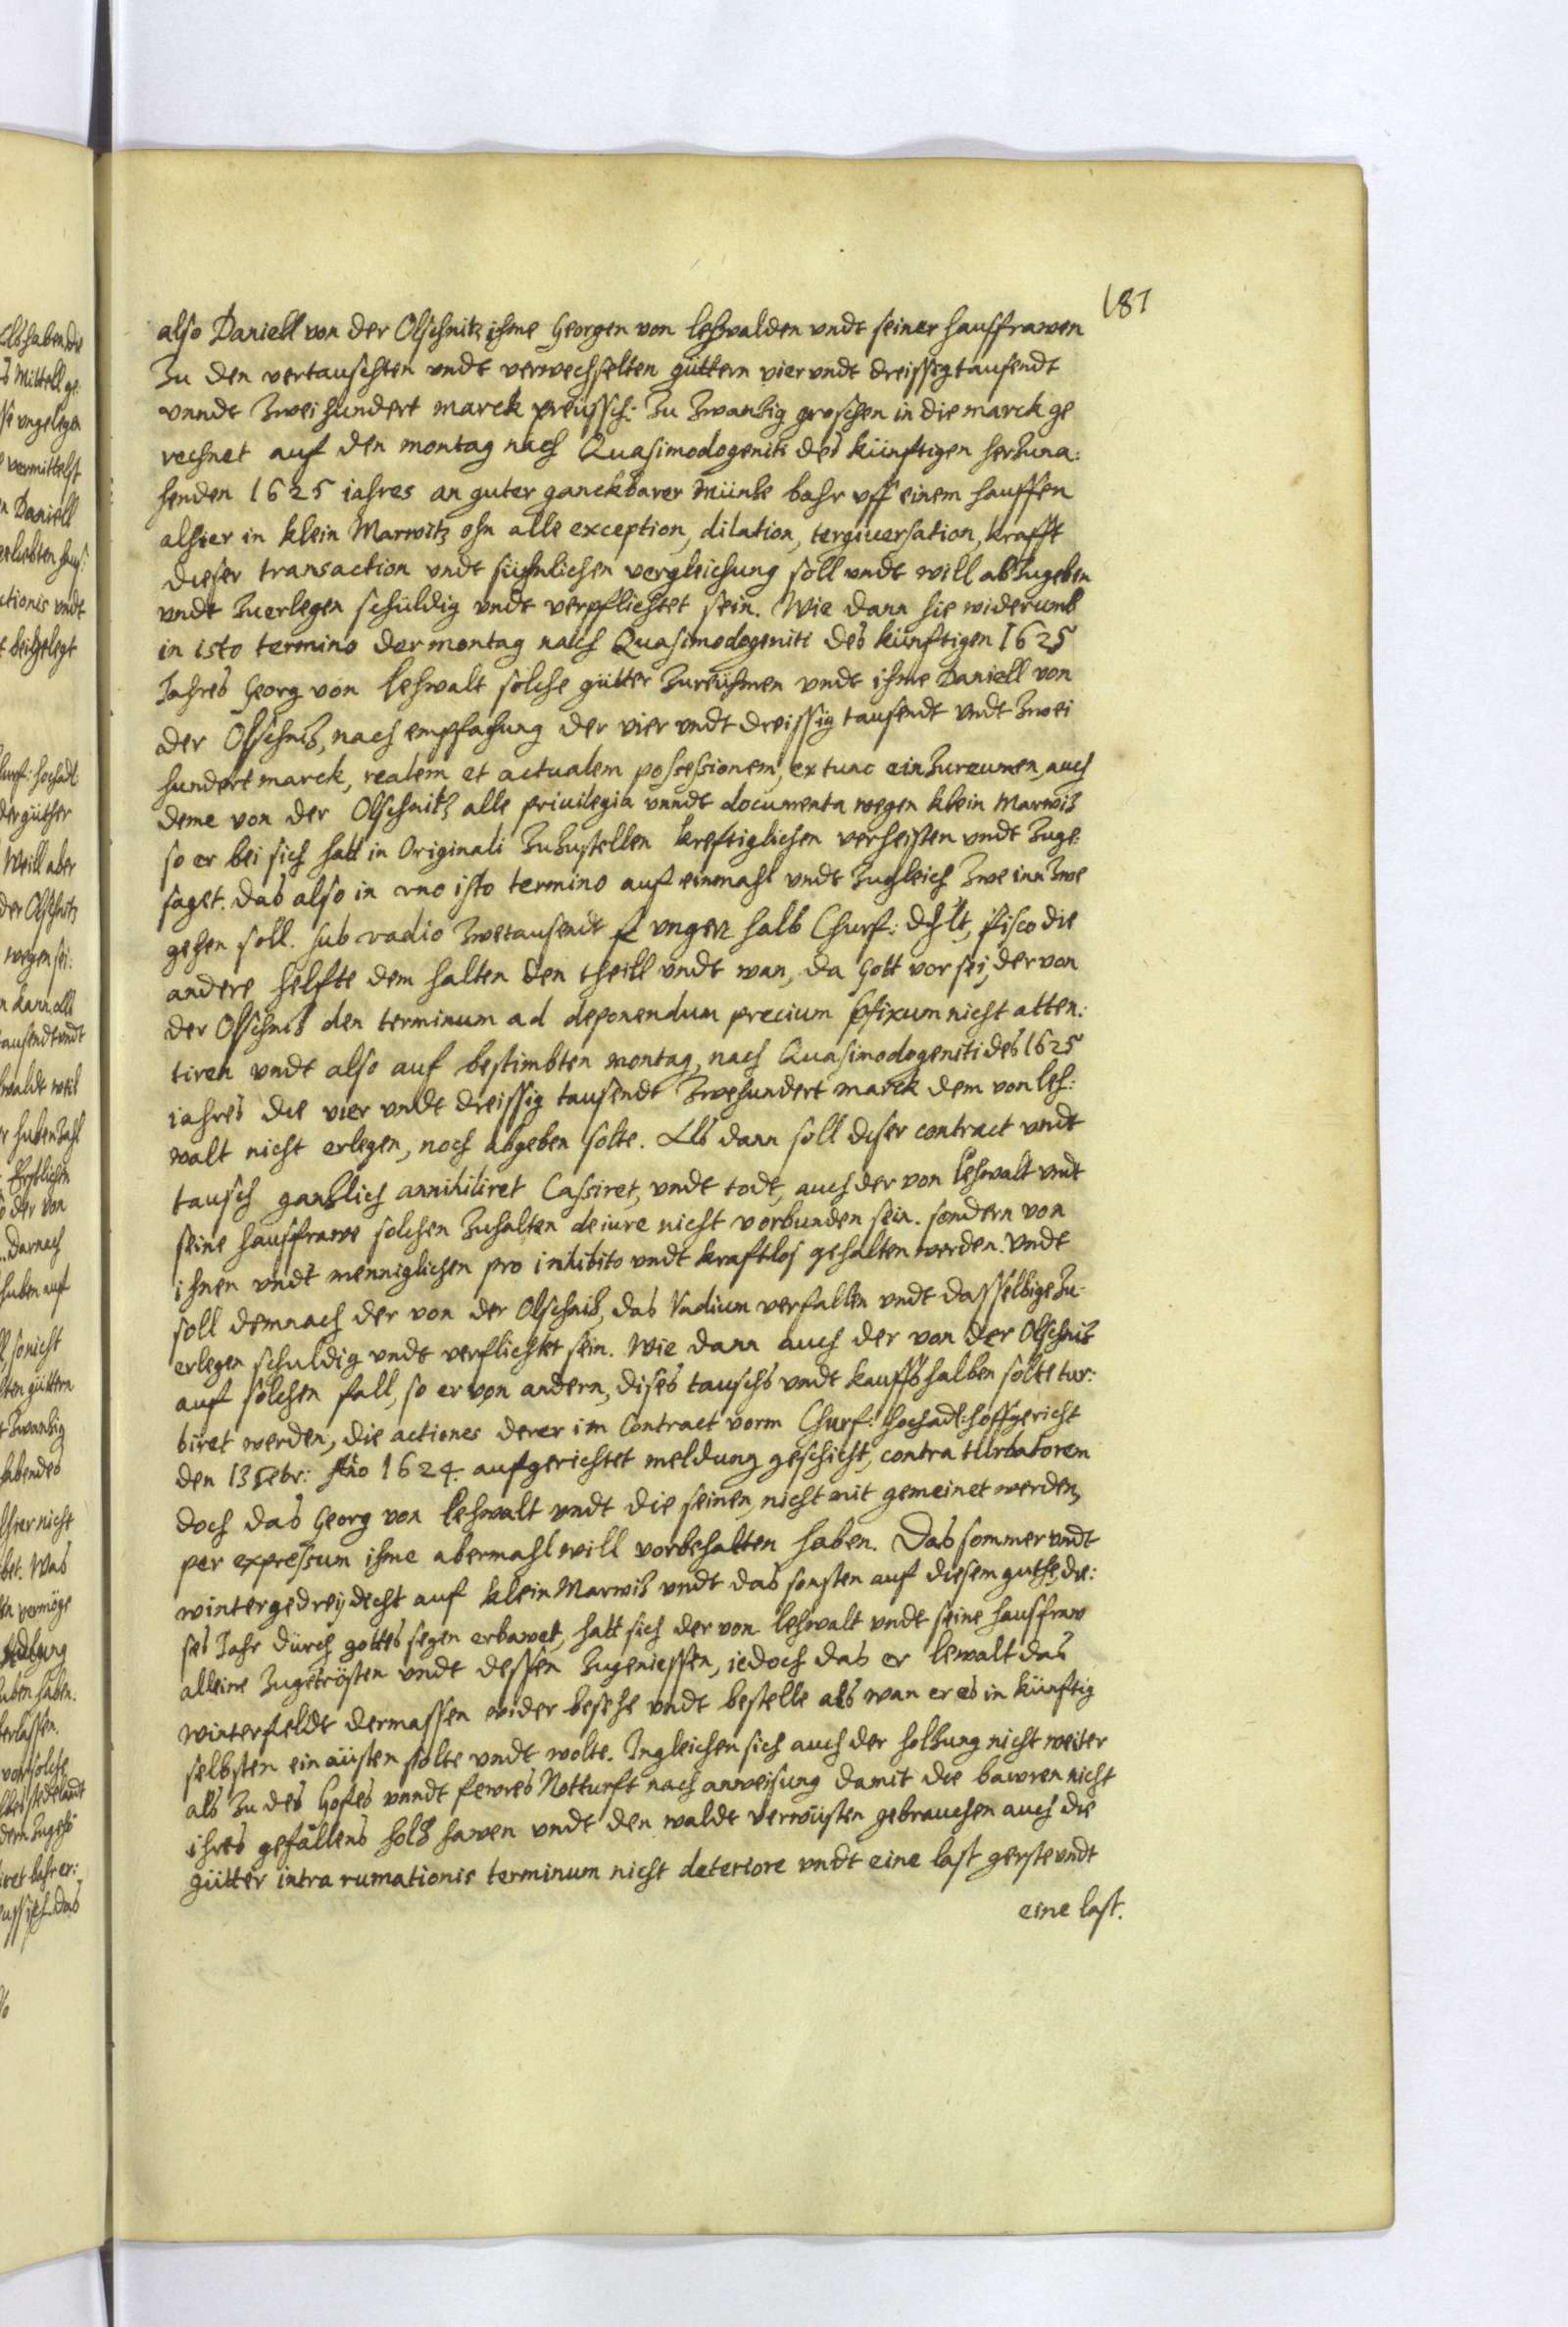 187
also Daniell von der Olschnitz ihme Georgen von lehwalden vndt seiner hausfrawen
Zu den vertauschten vndt verwechselten güttern vier vndt dreissigtausendt
vnndt Zweihundert marck preüssch: Zu Zwantzig groschen in die marck ge
rechnet auf den montag nach Quasimodogeniti des künftigen herzuna:
henden 1625 iahres an guter ganckbarer Müntze bahr vff einem hauffen
alhier in klein Marwitz ohn alle exception, dilation, tergiuersation, krafft
dieser transaction vndt sühnlichen vergleichung soll vndt will abzugeben
vndt Zuerlegen schüldig vndt verpflichtet sein. Wie dann hie widerumb
in isto termino der montag nach Quasimodogeniti des künftigen 1625
Jahres Georg von lehwalt solche gütter Zureühmen vndt ihme Daniell von
der Olschnitz, nach empfahung der vier vndt dreissig tausendt vndt Zwei
hundert marck, realem et actualem possessionem, ex tunc einzureumen, auch
deme von der Olschnitz alle priuilegia vnndt documenta wegen klein Marwitz
so er bei sich hatt in Originali Zuzustellen kreftiglichen verheissen vndt Zuge:
saget. das also in vno isto termino auf einmahl vndt Zugleich Zwe inn Zwe
gehen soll. sub vadio Zwetausendt fl vnger halb Churf: dhlt, fisco die
andere helfte dem haltenden theill vndt wan, da Gott vor sei, der von
der Olschnitz den terminum ad deponendum precium pfixum nicht atten:
tiren vndt also auf bestimbten montag, nach Quasimodogeniti des 1625
iahres die vier vndt dreissig tausendt Zwehundert marck dem von leh:
walt nicht erlegen, noch abgeben solte. Als dann soll diser contract vndt
tausch gantzlich annihiliret Cassiret, vndt todt, auch der von lehwalt vndt
seine hausfrawe solchen Zuhalten de iure nicht vorbunden sein. sondern von
ihnen vndt menniglichen pro inhibito vndt kraftlos gehalten werden. Vndt
soll demnach der von der Olschnitz, das Vadium verfallen vndt dasselbige Zu:
erlegen schuldig vndt verflichtet sein. Wie dann auch der von der Olschnitz
auf solchen fall, so er von andern, dises tauschs vndt kauffs halben solte tur:
biret werden, die actiones derer im Contract vorm Churf: hochadl: hoffgericht
den 13 Febr: Ao 1624. aufgerichtet meldung geschicht, contra turbatorem
doch das Georg von lehwalt vndt die seinen, nicht mit gemeinet werden,
per expressum ihme abermahl will vorbehalten haben. Das sommer vndt
wintergedreydicht auf klein Marwitz vndt das sonsten auf diesem guthe, die:
ses Jahr durch gottes segen erbawet, hatt sich der von lehwalt vndt seine hausfraw
alleine Zugetrösten vndt dessen Zugeniessen, iedoch das er lewalt das
winterfeldt dermassen wider besehe vndt bestelle als wan er es in künftig
selbsten einaüsten solte vndt wolte. Ingleichen sich auch der holtzung nicht weiter
als Zu des Hofes vnndt fewres Notturft nach anweisung damit die bawren nicht
ihres gefallens holtz hawen vndt den waldt verwüsten gebrauchen auch die
gütter intra rumationis terminum nicht deteriore vndt eine last gerste vndt
eine last.